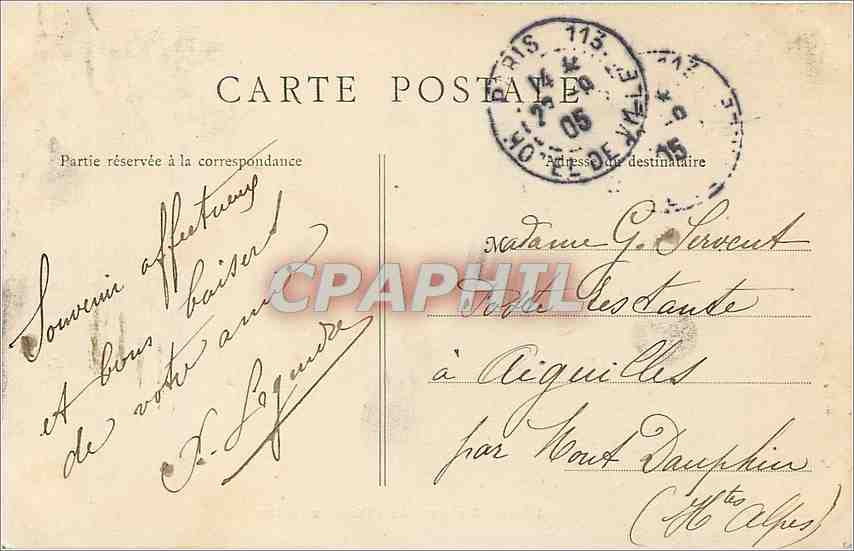 CARTE POSTALE
PARIS 113
14
05
HÔTEL DE VILLE
Partie réservée à la correspondance
Adresse du destinataire
Souvenir affectueux
et bons baisers
de votre ami
X. Legendre
Madame G. Servent
Poste restante
à Aiguilles
par Mont Dauphin
(Htes Alpes)
CPAPHIL